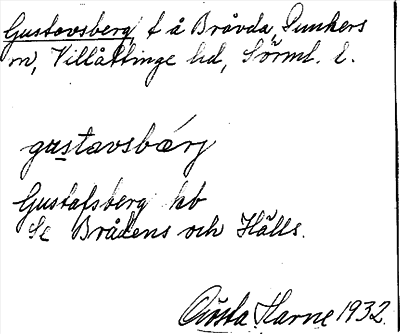 Gustavsberg, t å Bråvda, Lunkers
sn, Villåttinge hd, Sörml. l.
gustavsbärj
Gustafsberg kb
Se Brådens och Hälls.
Gösta Harne 1932.